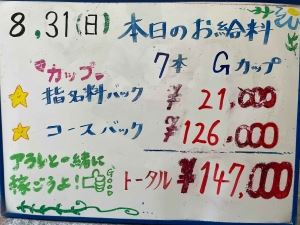 8.31(日) 本日のお給料
カップ 7本 Gカップ
指名料バック ¥21,000
コースバック ¥126,000
アラレと一緒に
稼ごうよ! GOOD
トータル ¥147,000